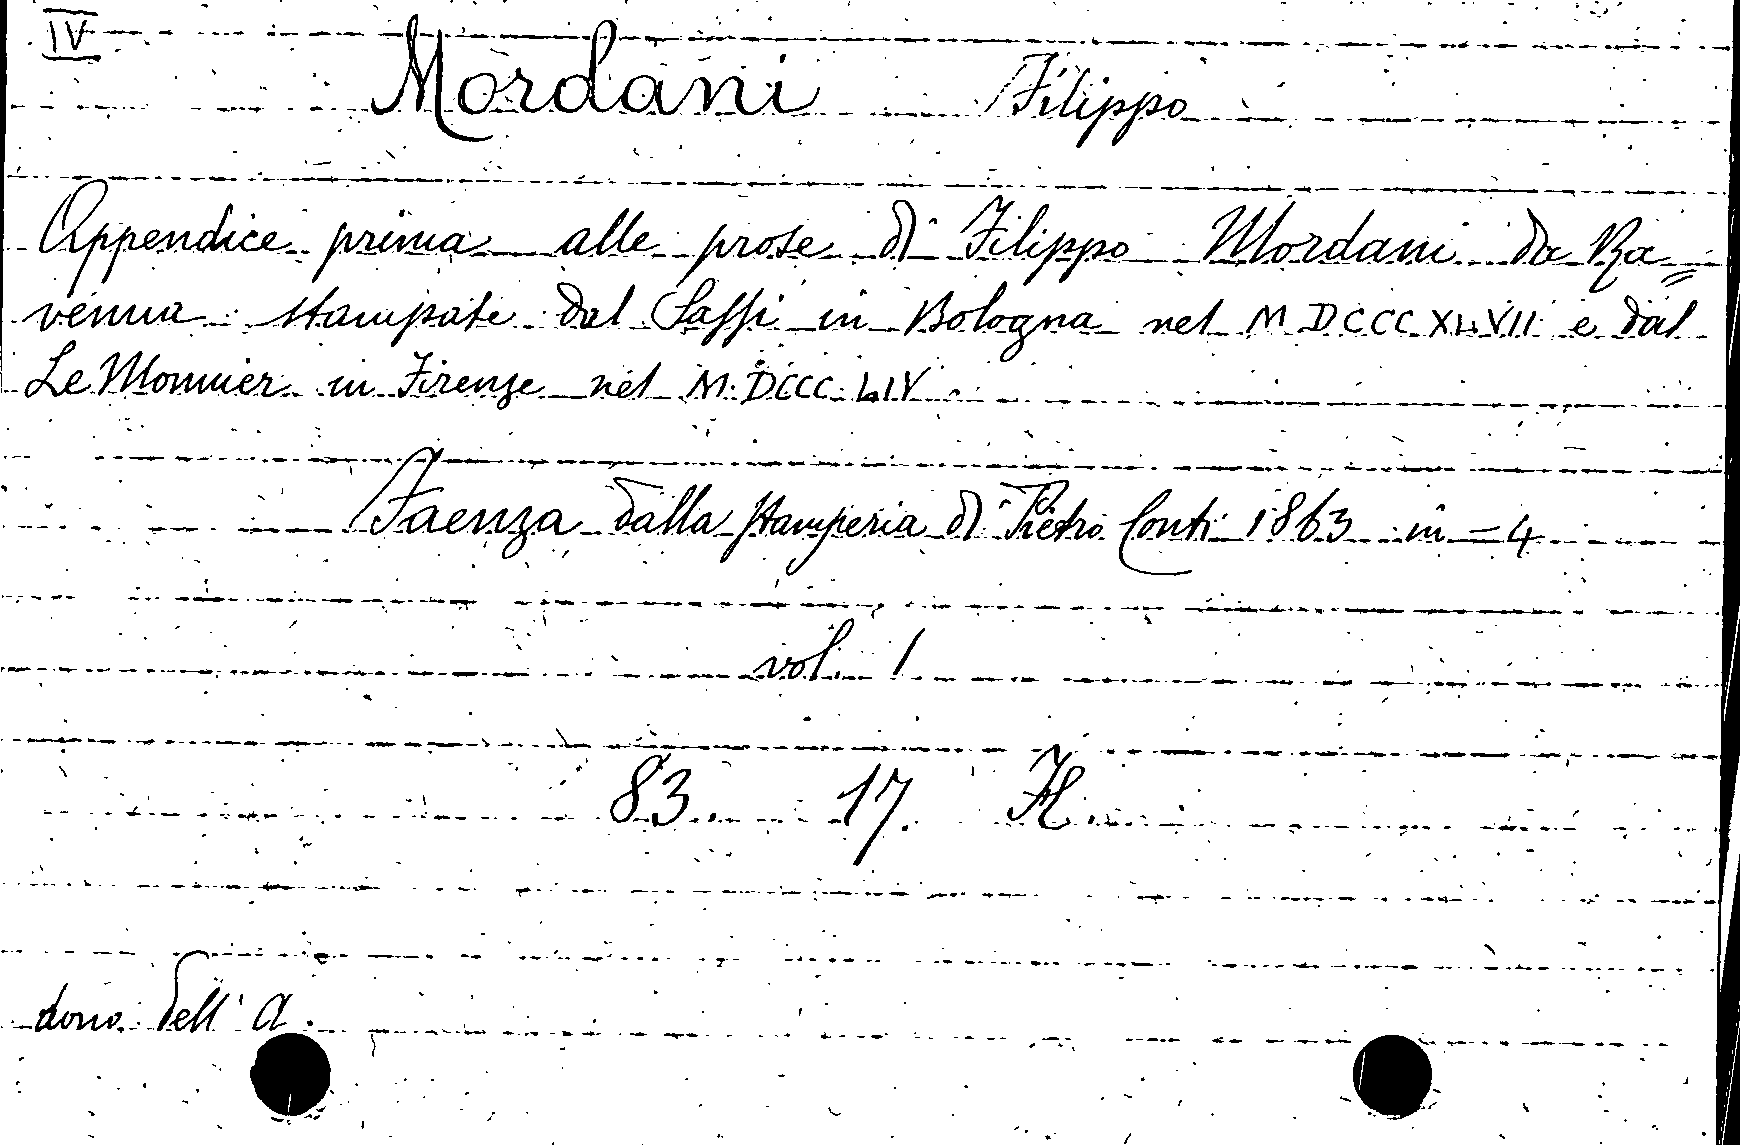 IV
Mordani Filippo
Appendice prima alle prose di Filippo Mordani da Ra=
venna stampate dal Sassi in Bologna nel MDCCCXLVII e dal
Le Monnier in Firenze nel M.DCCC.LIV.
Faenza dalla stamperia di Pietro Conti 1863 in=4
vol. 1
83. 17. H.
dono dell'A.